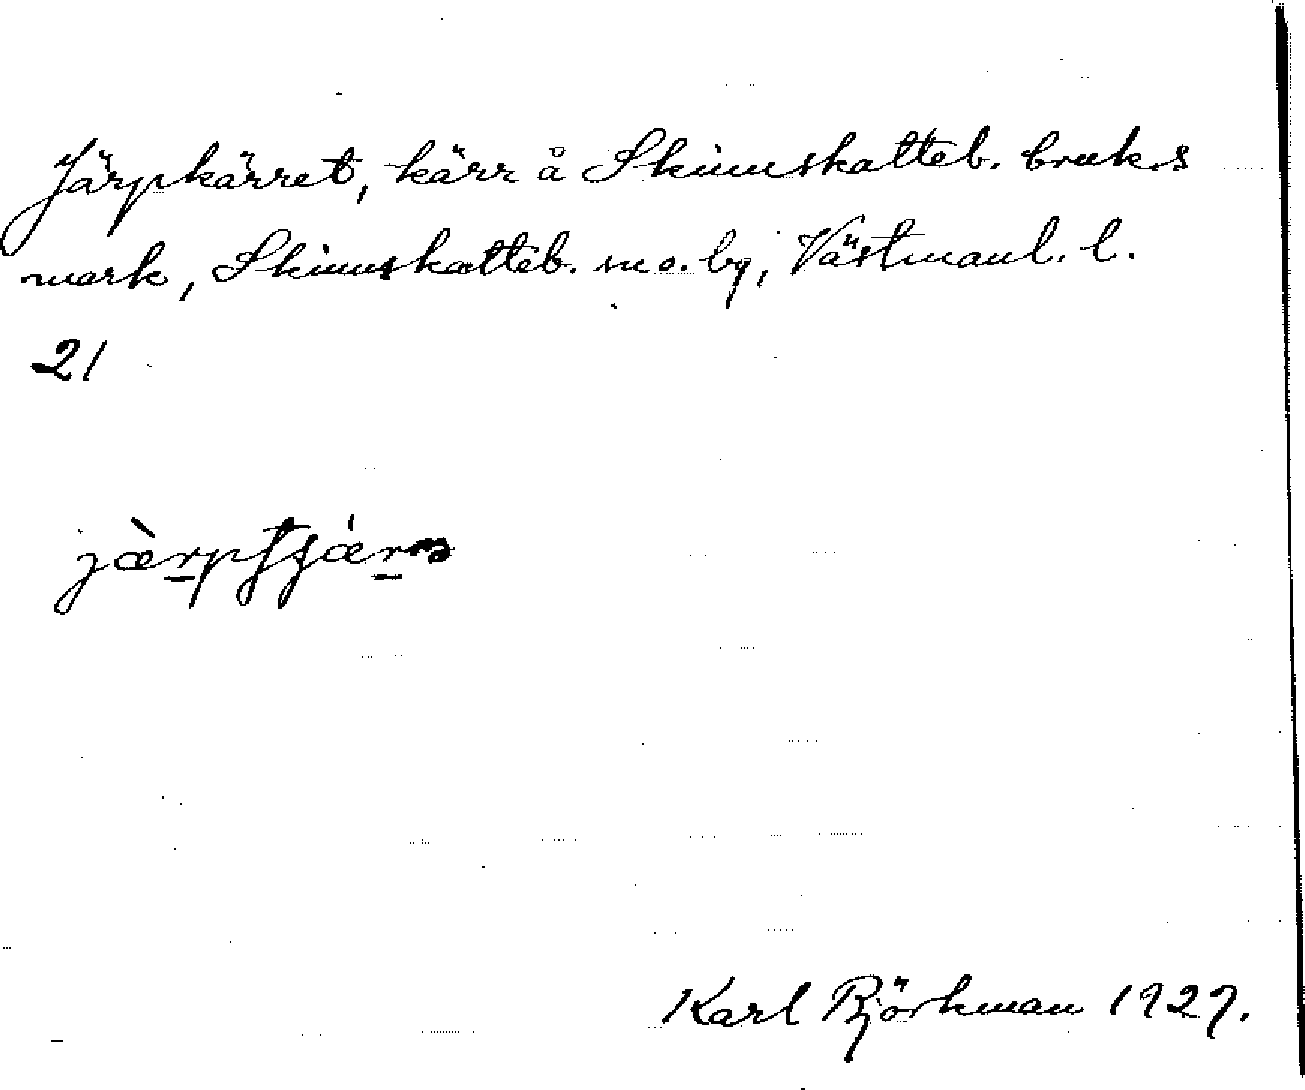 Järpkärret, kärr å Skinnskatteb. bruks
mark, Skinnskatteb. sn o. by, Västmanl. l.
21
Karl Björkman 1927.